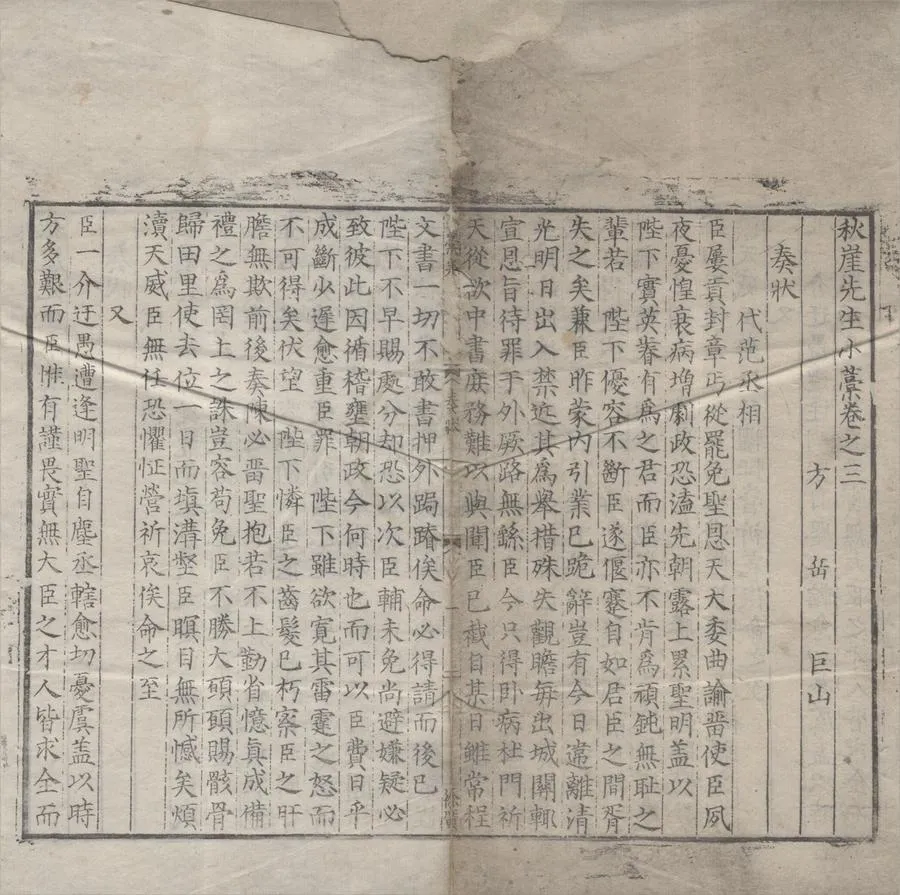 秋崖先生小藁卷之三
方 岳 巨山
奏狀
代范丞相
臣屢貢封章丐從罷免聖恩天大委曲諭畱使臣夙
夜憂惶衰病增劇政恐溘先朝露上累聖明盖以
陛下實英睿有爲之君而臣亦不肯爲頑鈍無耻之
輩若 陛下優容不斷臣遂偃蹇自如君臣之間胥
失之矣兼臣昨蒙內引業已跪辭豈有今日違離清
光明日出入禁近其爲舉措殊失觀瞻每出城闉輒
宣恩旨待罪于外厥路無繇臣今只得卧病杜門祈
天從欲中書庶務難以與聞臣已截自某日雖常程
文書一切不敢書押外跼蹐俟命必得請而後已
陛下不早賜處分却恐以次臣輔未免尚避嫌疑必
致彼此因循稽壅朝政今何時也而可以臣費日乎
成斷少遲愈重臣罪 陛下雖欲寬其雷霆之怒而
不可得矣伏望 陛下憐臣之齒髮已朽察臣之肝
膽無欺前後奏陳必畱聖抱若不上勤省憶眞成備
禮之爲罔上之誅豈容苟免臣不勝大願願賜骸骨
歸田里使去位一日而塡溝壑臣瞑目無所憾矣煩
瀆天威臣無任恐懼怔營祈哀俟命之至
又
臣一介迂愚遭逢明聖自塵丞轄愈切憂虞盖以時
方多艱而臣惟有謹畏實無大臣之才人皆求全而
奏狀